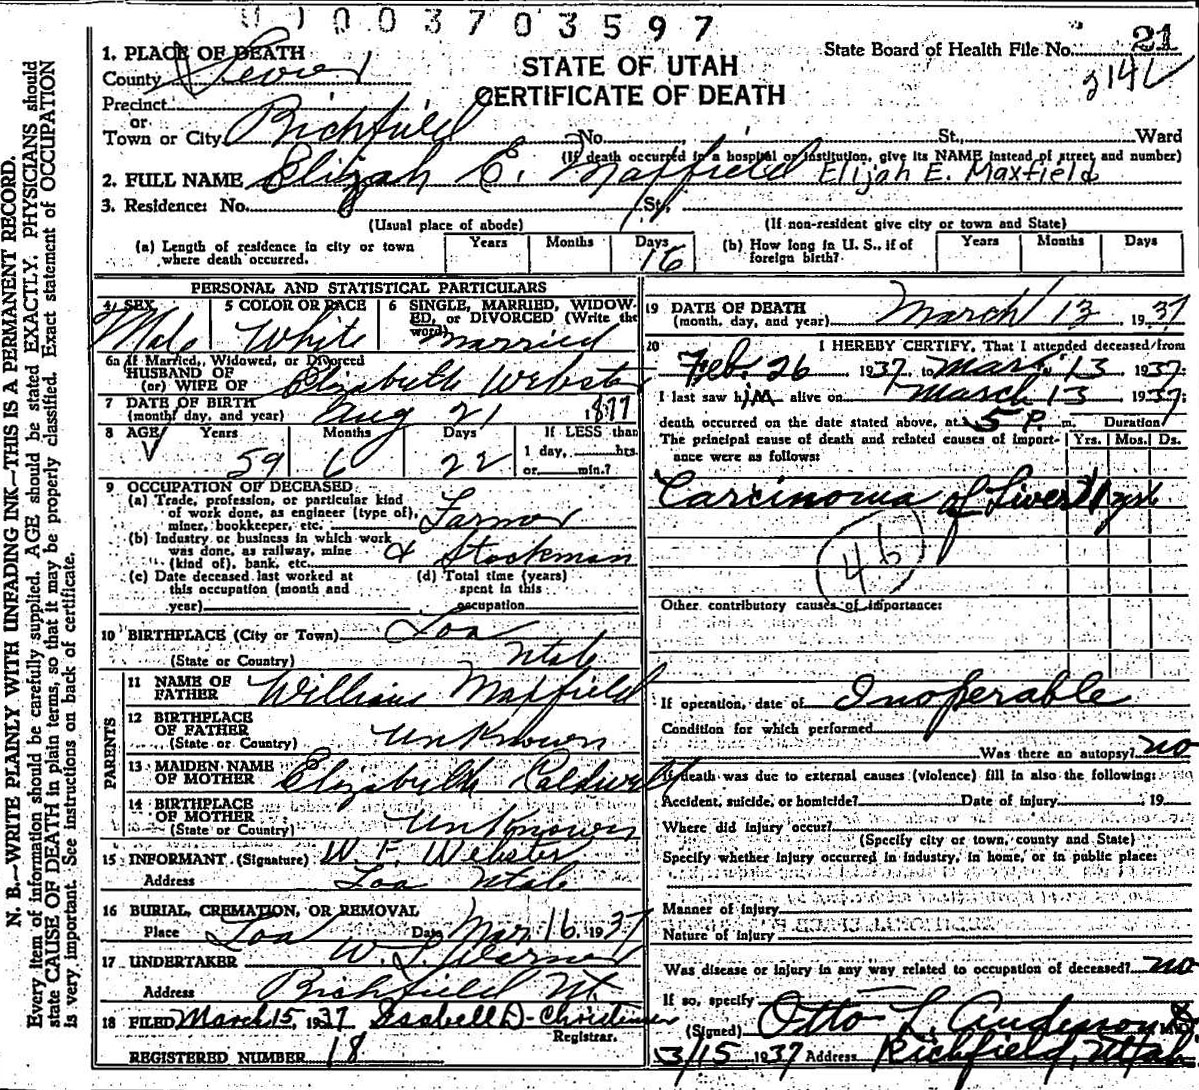 0 0 3 7 0 3 5 9 7
State Board of Health File No. 21
2142
STATE OF UTAH
CERTIFICATE OF DEATH
1. PLACE OF DEATH
County Sevier
Precinct
or
Town or City Richfield No. St., Ward
(If death occurred in a hospital or institution, give its NAME instead of street and number)
2. FULL NAME Elizah E. Maxfield Elijah E. Maxfield
3. Residence: No. St.,
(Usual place of abode) (If non-resident give city or town and State)
(a) Length of residence in city or town where death occurred. Years Months Days 16
(b) How long in U. S., if of foreign birth? Years Months Days
PERSONAL AND STATISTICAL PARTICULARS
4 SEX Male
5 COLOR OR RACE White
6 SINGLE, MARRIED, WIDOWED, or DIVORCED (Write the word) Married
6a If Married, Widowed, or Divorced
HUSBAND OF
(or) WIFE OF Elizabeth Webster
7 DATE OF BIRTH
(month, day, and year) Aug 21 1877
8 AGE Years 59 Months 6 Days 22 If LESS than 1 day, hrs. or min.?
9 OCCUPATION OF DECEASED
(a) Trade, profession, or particular kind
of work done, as engineer (type of),
miner, bookkeeper, etc. Farmer
(b) Industry or business in which work
was done, as railway, mine
(kind of), bank, etc. & Stockman
(c) Date deceased last worked at
this occupation (month and
year)
(d) Total time (years)
spent in this
occupation
10 BIRTHPLACE (City or Town) Loa
(State or Country) Utah
PARENTS
11 NAME OF
FATHER William Maxfield
12 BIRTHPLACE
OF FATHER
(State or Country) Unknown
13 MAIDEN NAME
OF MOTHER Elizabeth Caldwell
14 BIRTHPLACE
OF MOTHER
(State or Country) Unknown
15 INFORMANT (Signature) W. F. Webster
Address Loa Utah
16 BURIAL, CREMATION, OR REMOVAL
Place Loa Date Mar. 16, 1937
17 UNDERTAKER W. L.
Address Richfield Ut.
18 FILED March 15, 1937 Isabell D. Christensen
Registrar.
REGISTERED NUMBER 18
19 DATE OF DEATH
(month, day, and year) March 13 1937
20 I HEREBY CERTIFY, That I attended deceased from
Feb. 26 1937, to Mar. 13 1937;
I last saw him alive on March 13 1937;
death occurred on the date stated above, at 5 P. m. Duration
The principal cause of death and related causes of importance were as follows: Yrs. Mos. Ds.
Carcinoma of Liver 1
46
Other contributory causes of importance:
If operation, date of Inoperable
Condition for which performed
Was there an autopsy? no
If death was due to external causes (violence) fill in also the following:
Accident, suicide, or homicide? Date of injury 19
Where did injury occur?
(Specify city or town, county and State)
Specify whether injury occurred in industry, in home, or in public place:
Manner of injury
Nature of injury
Was disease or injury in any way related to occupation of deceased? no
If so, specify
(Signed) Otto L. Anderson
3/15 1937 Address Richfield, Utah
N. B.—WRITE PLAINLY WITH UNFADING INK—THIS IS A PERMANENT RECORD.
Every item of information should be carefully supplied. AGE should be stated EXACTLY. PHYSICIANS should
state CAUSE OF DEATH in plain terms, so that it may be properly classified. Exact statement of OCCUPATION
is very important. See instructions on back of certificate.